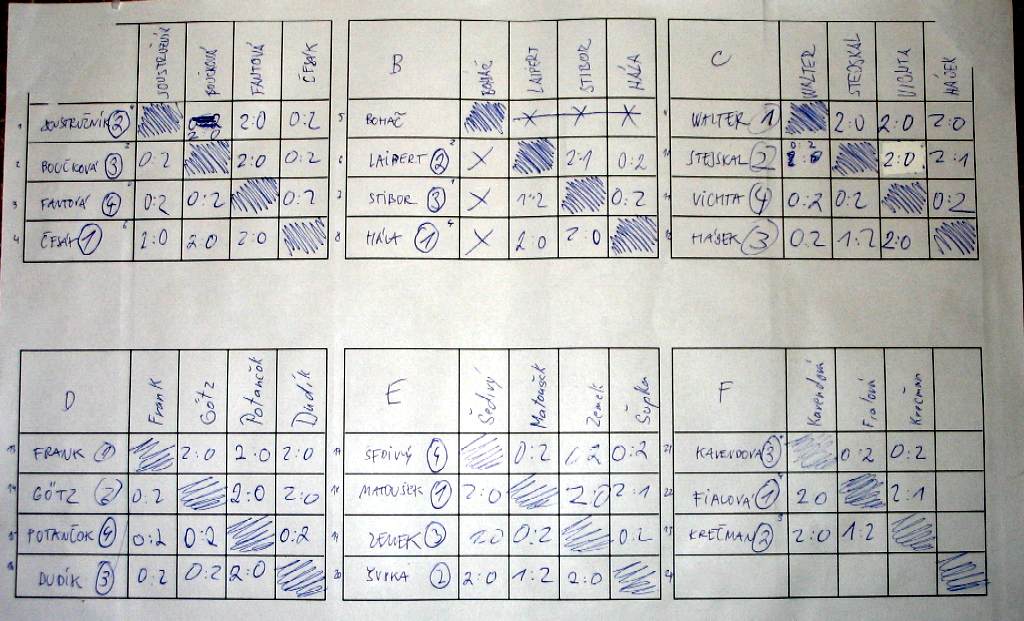 SOUSTRUŽNÍK BOUČKOVÁ FANTOVÁ ČESÁK
1 SOUSTRUŽNÍK 2 2:0 2:0 0:2
2 BOUČKOVÁ 3 0:2 2:0 0:2
3 FANTOVÁ 4 0:2 0:2 0:2
4 ČESÁK 1 2:0 2:0 2:0
B BOHÁČ LAIPERT STIBOR HÁLA
5 BOHÁČ X X X
6 LAIPERT 2 X 2:1 0:2
7 STIBOR 3 X 1:2 0:2
8 HÁLA 1 X 2:0 2:0
C WALTER STEJSKAL VICHTA HÁJEK
9 WALTER 1 2:0 2:0 2:0
10 STEJSKAL 2 0:2 2:0 2:1
11 VICHTA 4 0:2 0:2 0:2
12 HÁJEK 3 0:2 1:2 2:0
D Frank Götz Potančok Dudík
13 FRANK 1 2:0 2:0 2:0
14 GÖTZ 2 0:2 2:0 2:0
15 POTANČOK 4 0:2 0:2 0:2
16 DUDÍK 3 0:2 0:2 2:0
E Šedivý Matoušek Zemek Šupka
17 ŠEDIVÝ 4 0:2 0:2
18 MATOUŠEK 1 2:0 2:0 2:1
19 ZEMEK 3 0:2 0:2
20 ŠUPKA 2 2:0 1:2 2:0
F Kavendová Fialová Krečman
21 KAVENDOVÁ 3 0:2 0:2
22 FIALOVÁ 1 2:0 2:1
23 KREČMAN 2 2:0 1:2
24